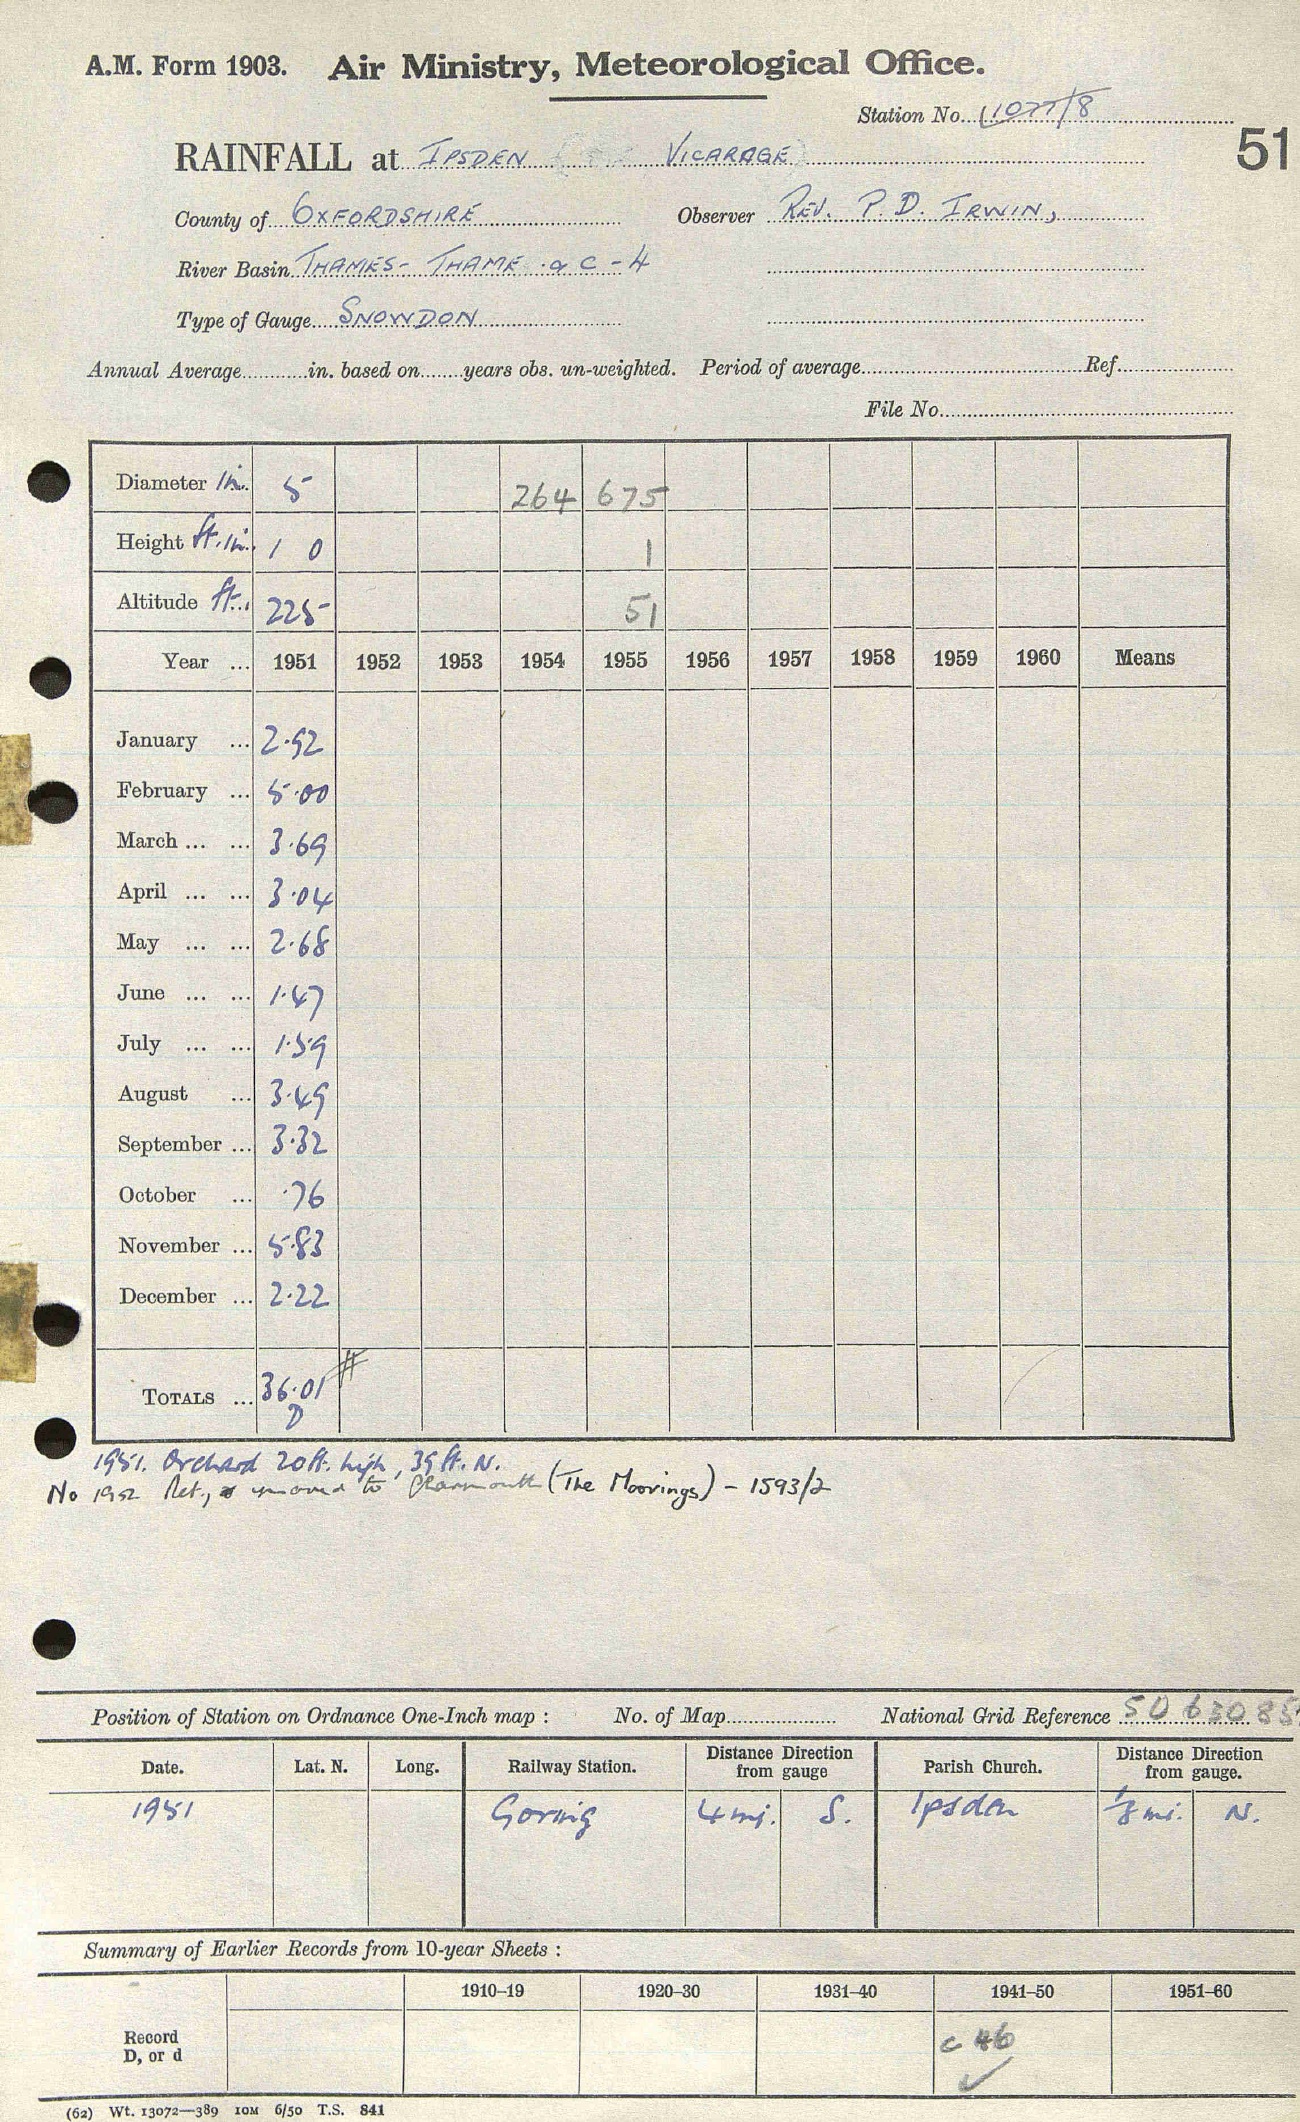 A.M. Form 1903. Air Ministry, Meteorological Office.
Station No. 1077/8
51
RAINFALL at IPSDEN VICARAGE
County of OXFORDSHIRE Observer REV. P. D. IRWIN,
River Basin THAMES - THAME a c - 4
Type of Gauge SNOWDON
Annual Average in. based on years obs. un-weighted. Period of average Ref.
File No.
Diameter in. 5 264 675
Height ft. in. 1 0 1
Altitude ft. 225 51
Year ... 1951 1952 1953 1954 1955 1956 1957 1958 1959 1960 Means
January ... 2.52
February ... 5.00
March ... ... 3.69
April ... ... 3.04
May ... ... 2.68
June ... ... 1.47
July ... ... 1.59
August ... 3.49
September ... 3.32
October ... .76
November ... 5.83
December ... 2.22
TOTALS ... 36.01 #
D
1951. Orchard 20 ft. high, 39 ft. N.
No 1952 Ret., moved to Charmouth (The Moorings) - 1593/2
Position of Station on Ordnance One-Inch map : No. of Map National Grid Reference
Date. Lat. N. Long. Railway Station. Distance Direction from gauge Parish Church. Distance Direction from gauge.
1951 Goring 4 mi. S. Ipsden 1/8 mi. N.
Summary of Earlier Records from 10-year Sheets :
1910–19 1920–30 1931–40 1941–50 1951–60
Record D, or d c 46 ✓
(62) Wt. 13072—389 10M 6/50 T.S. 841